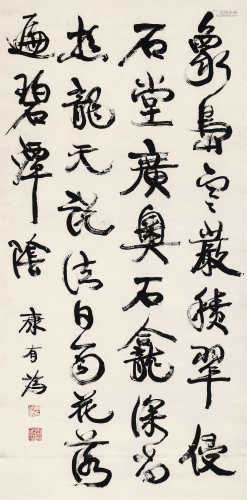 象鼻巖積翠侵
石堂廣奧石龕深尚
想龍天說法日雨花落
遍碧潭陰
康有為